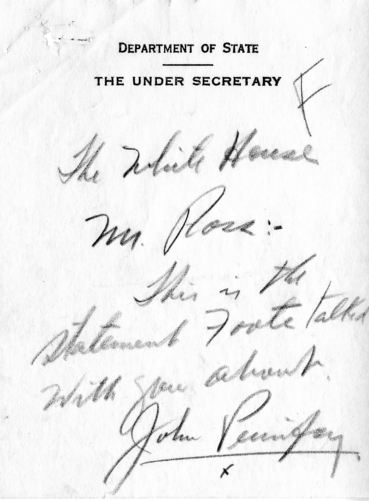 DEPARTMENT OF STATE
THE UNDER SECRETARY
F
The White House
Mr. Ross:-
This is the
statement Foote talked
with you about.
John Peurifoy
x